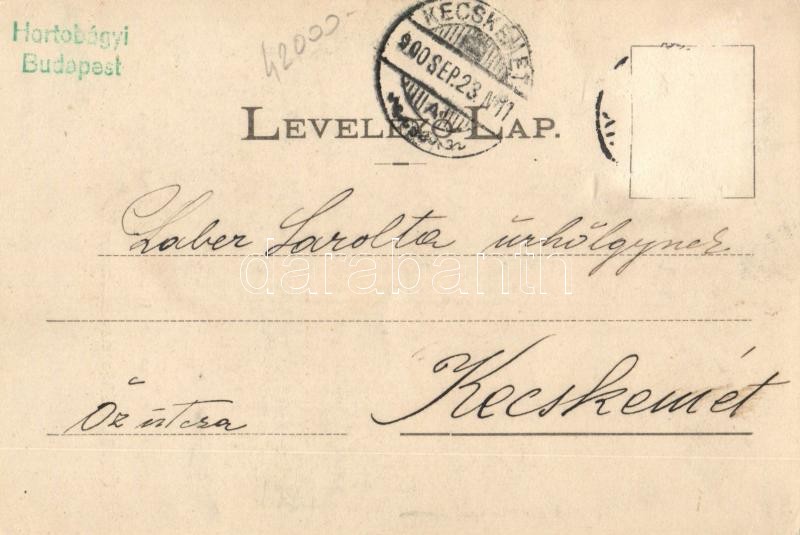 Hortobágyi
Budapest
42000-
KECSKEMÉT
900 SEP. 23. N 11
LEVELEZŐ-LAP.
Laber Sarolta úrhölgynek
darabanth
Kecskemét
Őz útcza